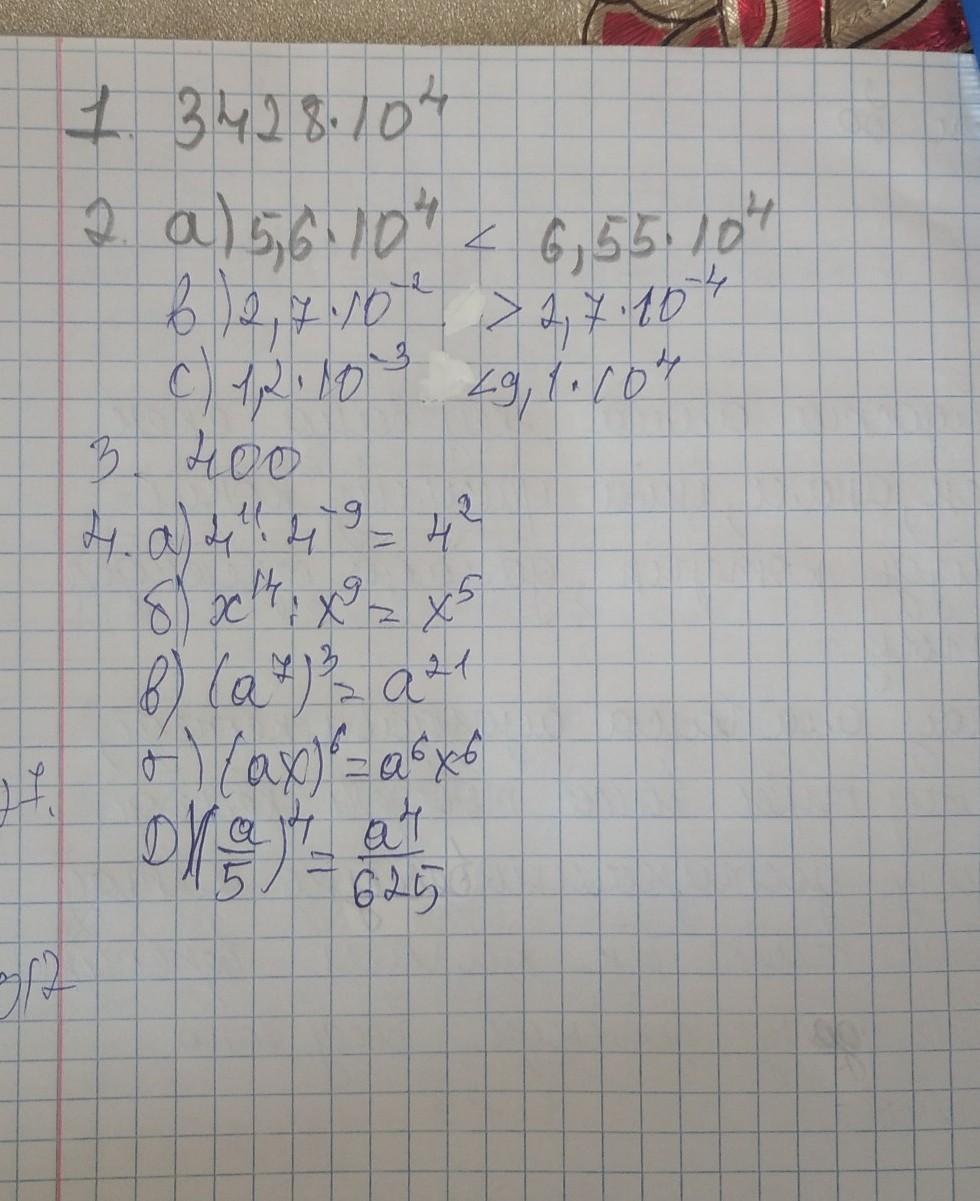 1. 3428·10⁴
2. а) 5,6·10⁴ < 6,55·10⁴
в) 2,7·10⁻² > 2,7·10⁻⁴
с) 1,2·10⁻³ < 9,1·10⁴
3. 400
4. а) 4¹¹·4⁻⁹ = 4²
б) x¹⁴ : x⁹ = x⁵
в) (a⁷)³ = a²¹
г) (ax)⁶ = a⁶x⁶
D) (a/5)⁴ = a⁴/625